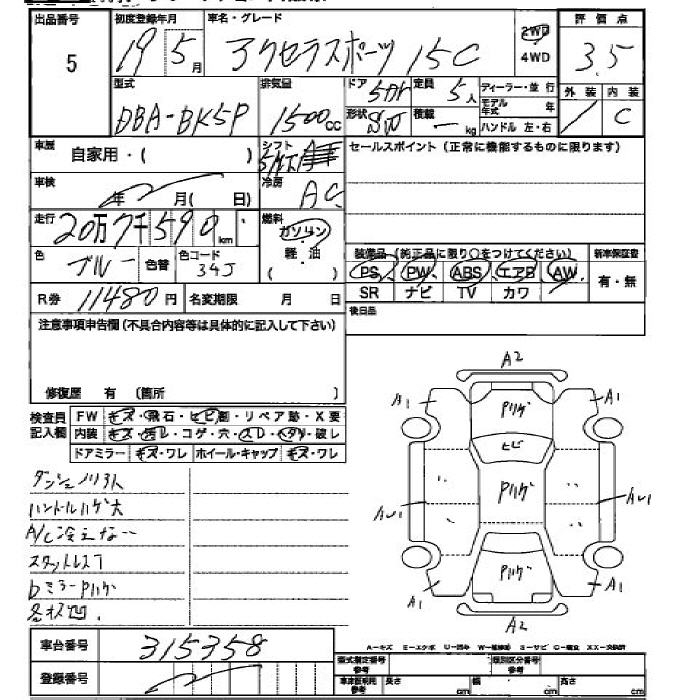 出品番号
5
初度登録年月
19 5月
車名・グレード
アクセラスポーツ 15C
2WD
4WD
評価点
3.5
型式
DBA-BK5P
排気量
1500cc
ドア
5
形状
SW
定員
5人
積載
- kg
ディーラー・並行
モデル年式 年
ハンドル 左・右
外装
内装
C
車歴
自家用・( )
シフト
冷房
AC
セールスポイント(正常に機能するものに限ります)
車検
年 月( 日)
走行
20万7千590km
燃料
ガソリン
軽・油
( )
色
ブルー
色替
色コード
34J
装備品(純正品に限り○をつけてください)
新車保証書
PS PW ABS エアB AW
SR ナビ TV カワ
有・無
R券
11480円
名変期限 月 日
後日品
注意事項申告欄(不具合内容等は具体的に記入して下さい)
修復歴 有 〔箇所 〕
検査員記入欄
FW キズ・飛石・ヒビ割・リペア跡・X要
内装 キズ・汚レ・コゲ・穴・スレ・ヘタリ・破レ
ドアミラー キズ・ワレ ホイール・キャップ キズ・ワレ
ハンドルハゲ大
A/C冷えない
スタットレス
bミラーPハゲ
各拡凹.
A2
A1
A1
Pハゲ
ヒビ
Pハゲ
Aw1
Aw1
Pハゲ
A1
A1
A2
車台番号
315358
登録番号
A-キズ E-エクボ U-凹み W-補修跡 S-サビ C-腐食 XX-交換済
型式指定番号 参考
類別区分番号 参考
車体寸法 参考
長さ cm
幅 cm
高さ cm